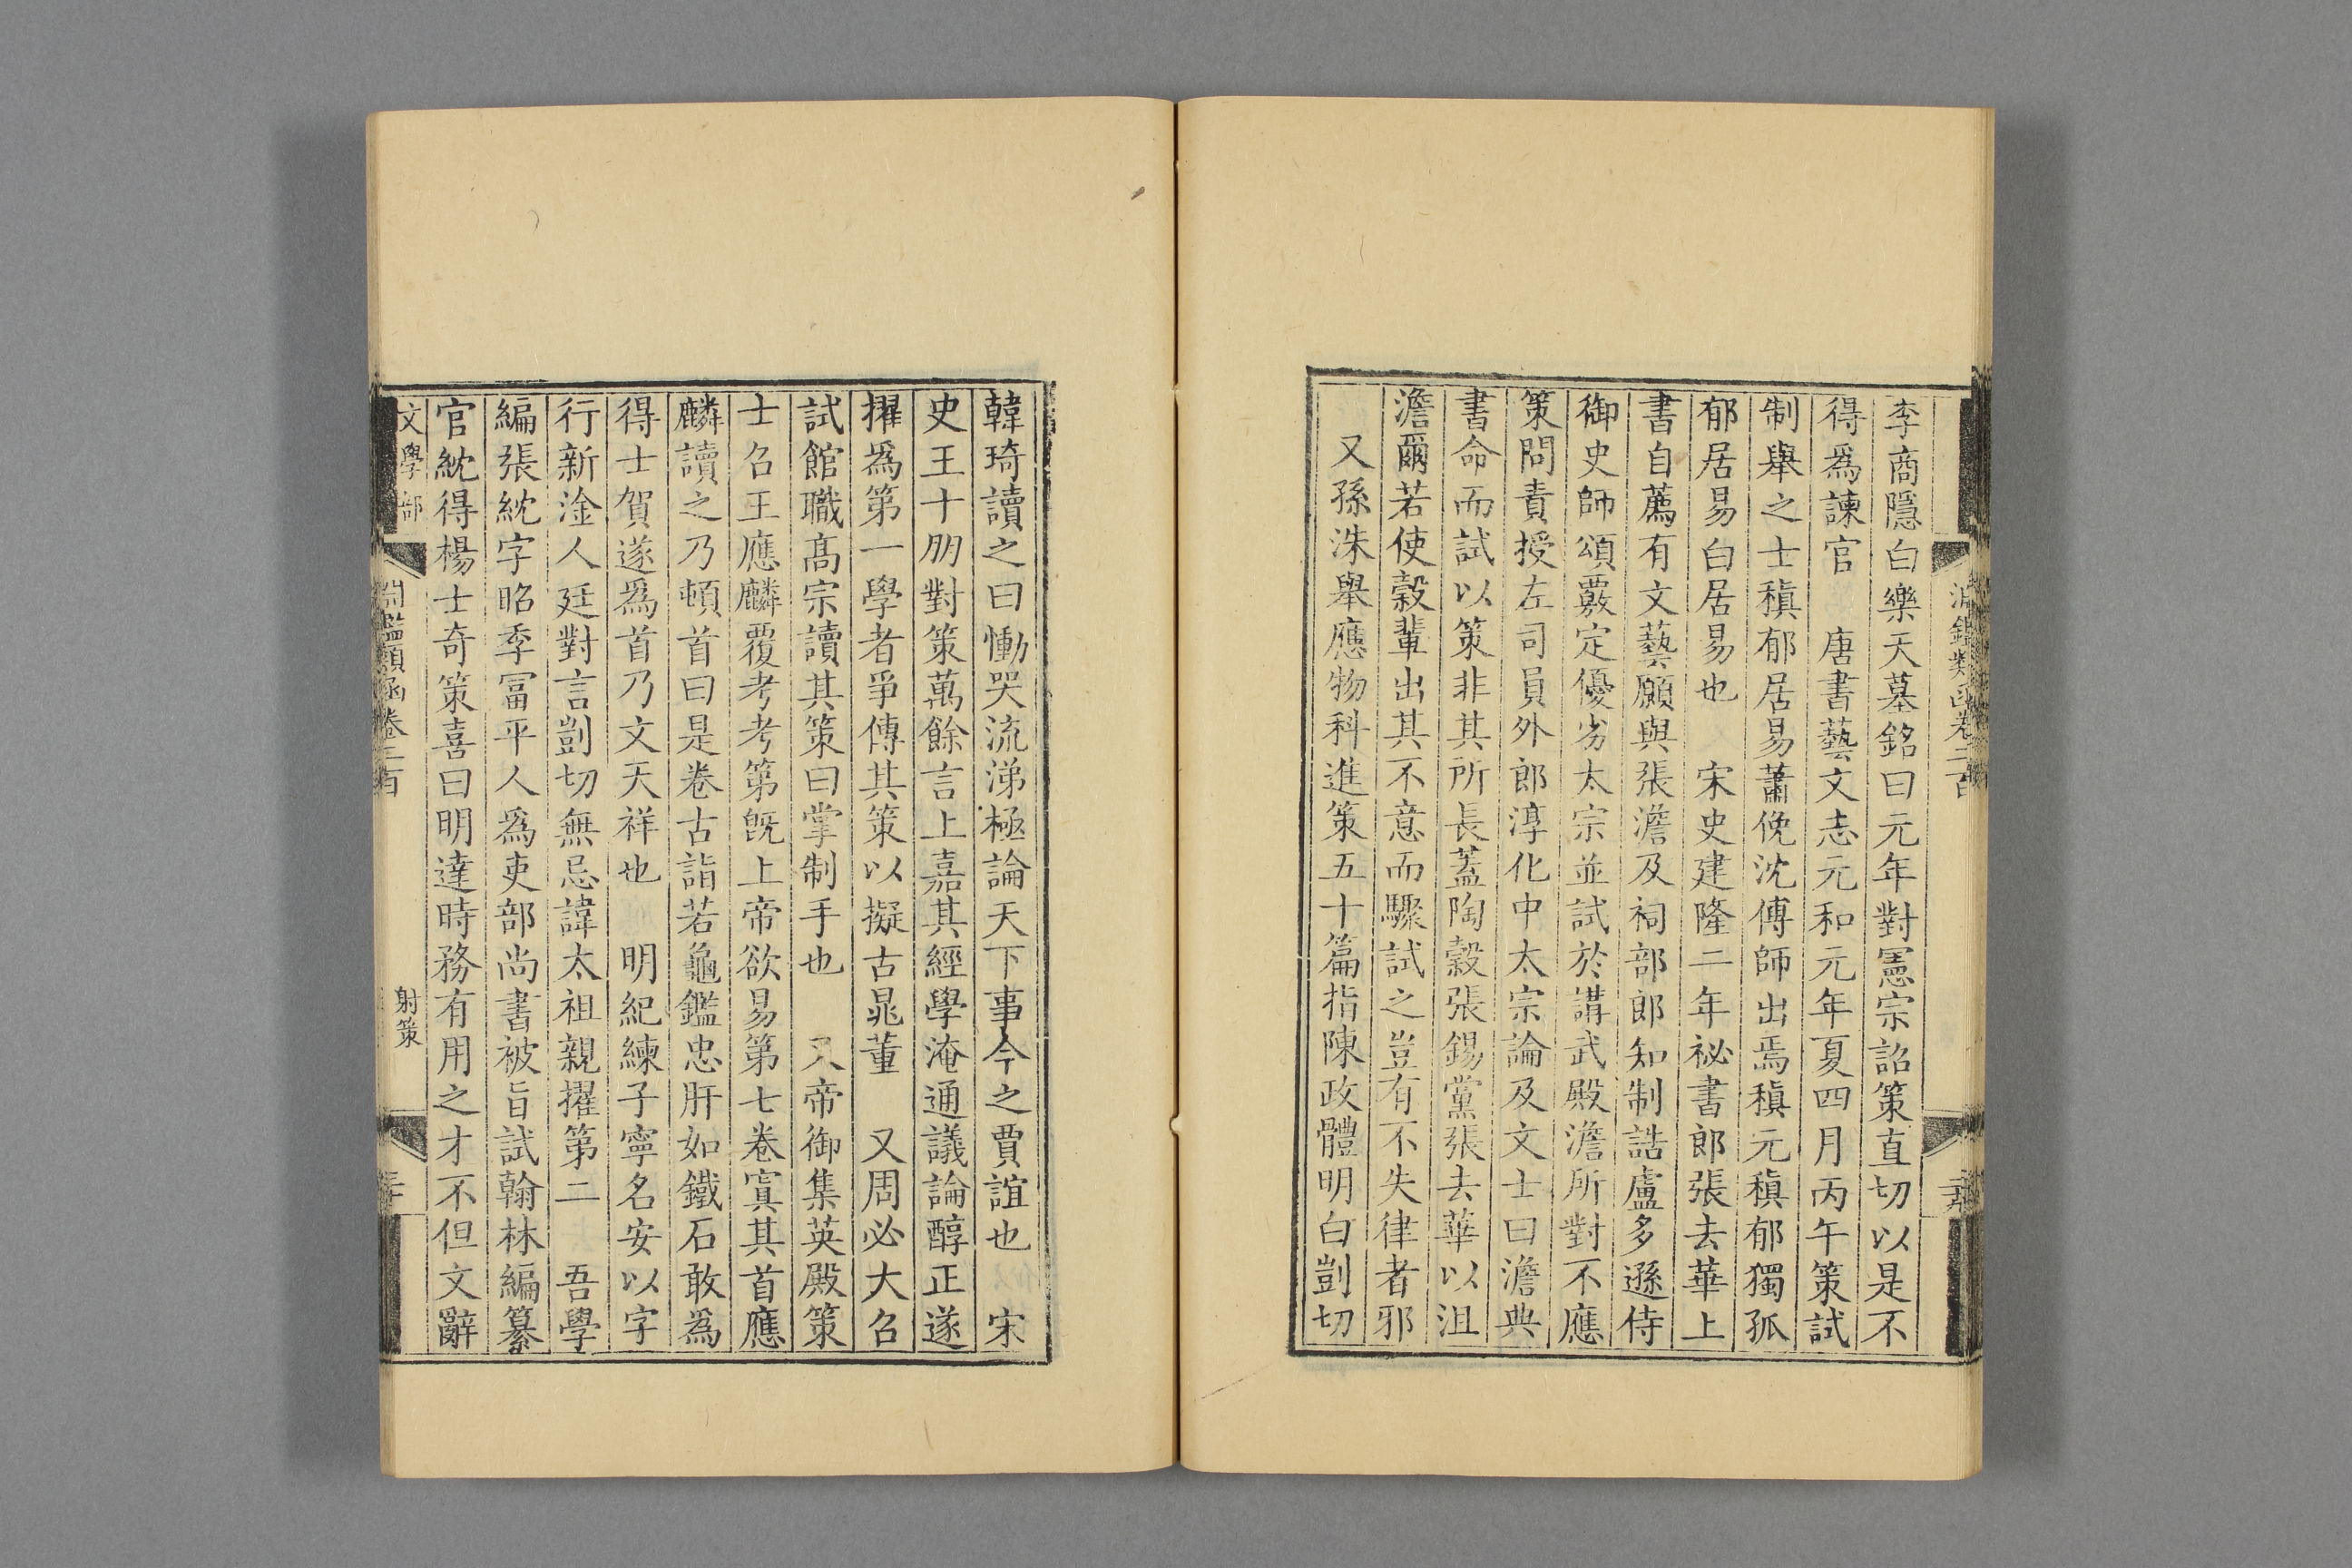 李商隱白樂天墓銘曰元年對憲宗詔策直切以是不
得爲諫官　唐書藝文志元和元年夏四月丙午策試
制舉之士稹郁居易蕭俛沈傳師出焉稹元稹郁獨孤
郁居易白居易也　宋史建隆二年祕書郎張去華上
書自薦有文藝願與張澹及祠部郎知制誥盧多遜侍
御史師頌覈定優劣太宗並試於講武殿澹所對不應
策問責授左司員外郎淳化中太宗論及文士曰澹典
書命而試以策非其所長蓋陶穀張錫黨張去華以沮
澹爾若使穀輩出其不意而驟試之豈有不失律者邪
又孫洙舉應物科進策五十篇指陳政體明白剴切
韓琦讀之曰慟哭流涕極論天下事今之賈誼也　宋
史王十朋對策萬餘言上嘉其經學淹通議論醇正遂
擢爲第一學者爭傳其策以擬古鼂董　又周必大召
試館職高宗讀其策曰掌制手也　又帝御集英殿策
士召王應麟覆考考第旣上帝欲易第七卷寘其首應
麟讀之乃頓首曰是卷古誼若龜鑑忠肝如鐵石敢爲
得士賀遂爲首乃文天祥也　明紀練子寧名安以字
行新淦人廷對言剴切無忌諱太祖親擢第二　吾學
編張紞字昭季富平人爲吏部尚書被旨試翰林編纂
官紞得楊士奇策喜曰明達時務有用之才不但文辭
文學部　淵鑑類函卷二百　射策